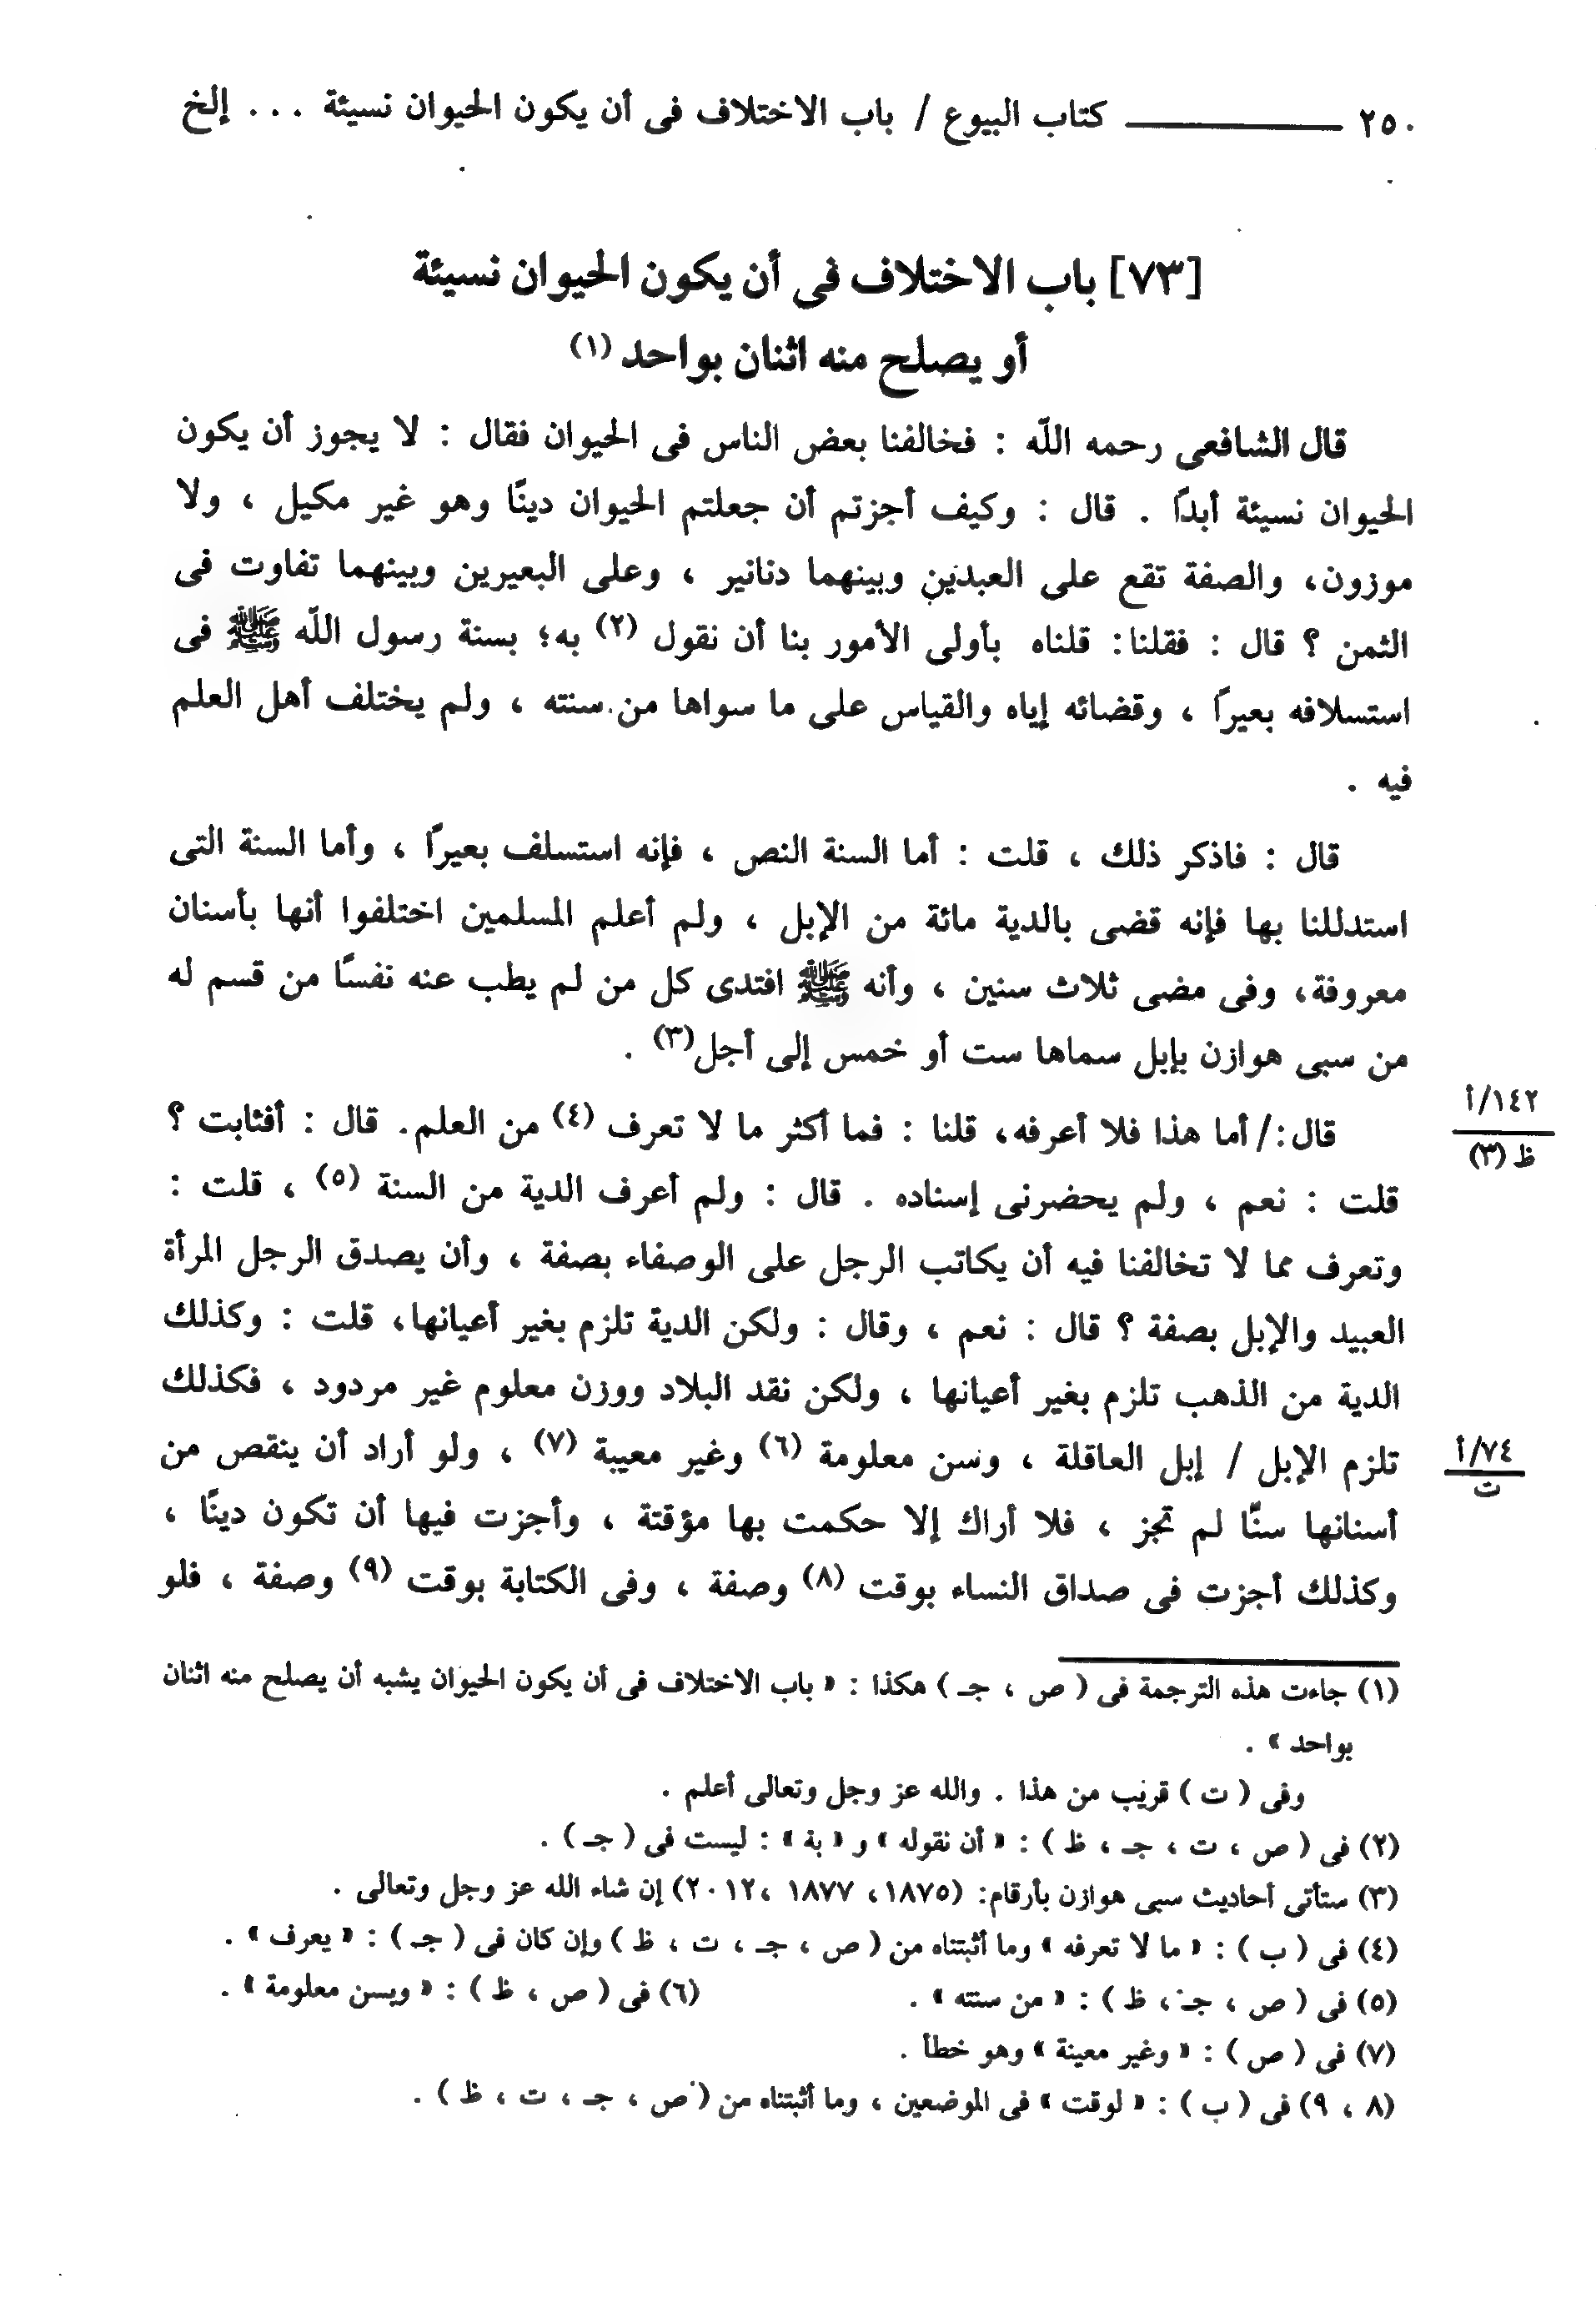 ٢٥٠ ــــــــــــ كتاب البيوع / باب الاختلاف فى أن يكون الحيوان نسيئة . . . إلخ
[٧٣] باب الاختلاف فى أن يكون الحيوان نسيئة
أو يصلح منه اثنان بواحد (١)
قال الشافعى رحمه اللّه : فخالفنا بعض الناس فى الحيوان فقال : لا يجوز أن يكون
الحيوان نسيئة أبدًا . قال : وكيف أجزتم أن جعلتم الحيوان دينًا وهو غير مكيل ، ولا
موزون، والصفة تقع على العبدين وبينهما دنانير ، وعلى البعيرين وبينهما تفاوت فى
الثمن ؟ قال : فقلنا: قلناه بأولى الأمور بنا أن نقول (٢) به؛ بسنة رسول اللّه ﷺ فى
استسلافه بعيرًا ، وقضائه إياه والقياس على ما سواها من سنته ، ولم يختلف أهل العلم
فيه .
قال : فاذكر ذلك ، قلت : أما السنة النص ، فإنه استسلف بعيرًا ، وأما السنة التى
استدللنا بها فإنه قضى بالدية مائة من الإبل ، ولم أعلم المسلمين اختلفوا أنها بأسنان
معروفة، وفى مضى ثلاث سنين ، وأنه ﷺ افتدى كل من لم يطب عنه نفسًا من قسم له
من سبى هوازن بإبل سماها ست أو خمس إلى أجل(٣) .
قال:/ أما هذا فلا أعرفه، قلنا : فما أكثر ما لا تعرف (٤) من العلم. قال : أفثابت ؟
١٤٢/أ
ظ (٣)
قلت : نعم ، ولم يحضرنى إسناده . قال : ولم أعرف الدية من السنة (٥) ، قلت :
وتعرف مما لا تخالفنا فيه أن يكاتب الرجل على الوصفاء بصفة ، وأن يصدق الرجل المرأة
العبيد والإبل بصفة ؟ قال : نعم ، وقال : ولكن الدية تلزم بغير أعيانها، قلت : وكذلك
الدية من الذهب تلزم بغير أعيانها ، ولكن نقد البلاد ووزن معلوم غير مردود ، فكذلك
تلزم الإبل / إبل العاقلة ، وسن معلومة (٦) وغير معيبة (٧) ، ولو أراد أن ينقص من
٧٤/أ
ت
أسنانها سنًّا لم تجز ، فلا أراك إلا حكمت بها مؤقتة ، وأجزت فيها أن تكون دينًا ،
وكذلك أجزت فى صداق النساء بوقت (٨) وصفة ، وفى الكتابة بوقت (٩) وصفة ، فلو
(١) جاءت هذه الترجمة فى ( ص ، جـ ) هكذا : « باب الاختلاف فى أن يكون الحيوان يشبه أن يصلح منه اثنان
بواحد » .
وفى ( ت ) قريب من هذا . والله عز وجل وتعالى أعلم .
(٢) فى ( ص ، ت ، جـ ، ظ ) : « أن نقوله » و « به » : ليست فى ( جـ ) .
(٣) ستأتى أحاديث سبى هوازن بأرقام: (١٨٧٥، ١٨٧٧ ،٢٠١٢) إن شاء الله عز وجل وتعالى .
(٤) فى ( ب ) : « ما لا تعرفه » وما أثبتناه من ( ص ، جـ ، ت ، ظ ) وإن كان فى ( جـ ) : « يعرف » .
(٥) فى ( ص ، جـ ، ظ ) : « من سنته » . (٦) فى ( ص ، ظ ) : « وبسن معلومة » .
(٧) فى ( ص ) : « وغير معينة » وهو خطأ .
(٨ ، ٩) فى ( ب ) : « لوقت » فى الموضعين ، وما أثبتناه من ( ص ، جـ ، ت ، ظ ) .